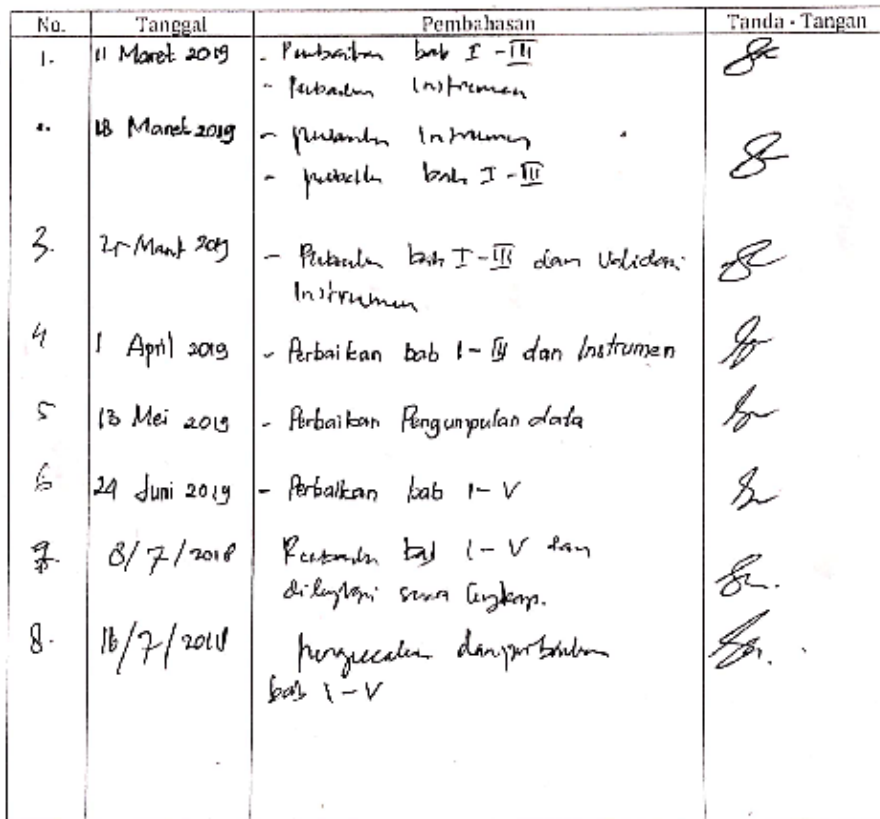 No. Tanggal Pembahasan Tanda - Tangan
1. 11 Maret 2019 - Perbaikan bab I - III
- Perbaikan Instrumen
18 Maret 2019 - perbaikan Instrumen
- perbaikan bab I - III
3. 25 Maret 2019 - Perbaikan bab I - III dan Validasi
Instrumen
4 1 April 2019 - Perbaikan bab I - III dan Instrumen
5 13 Mei 2019 - Perbaikan Pengumpulan data
6 24 Juni 2019 - Perbaikan bab I - V
7. 8/7/2018 Perbaikan bab I - V dan
dilengkapi secara lengkap.
8. 16/7/2018 pengecekan dan perbaikan
bab I - V